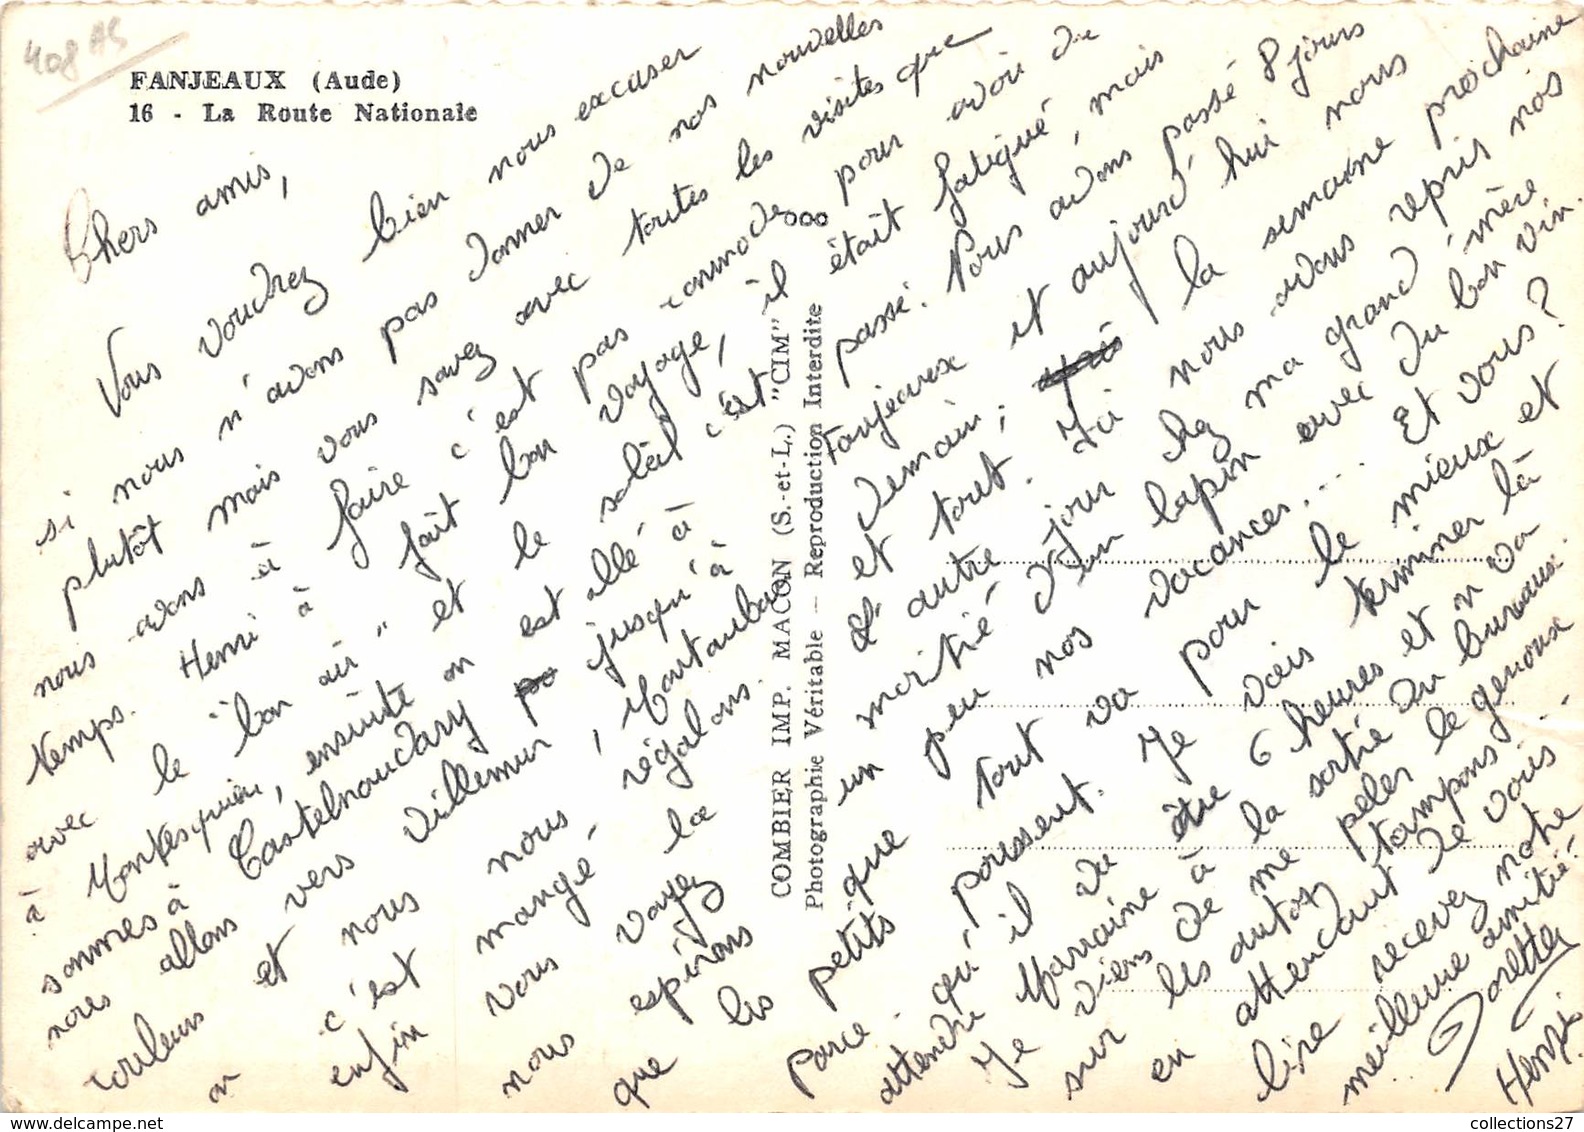 408 AS
FANJEAUX (Aude)
16 - La Route Nationale
Chers amis,
Vous voudrez bien nous excuser
si nous n'avons pas donner de nos nouvelles
plutôt mais vous savez avec toutes les visites que
nous avons à faire c'est pas commode ooo pour avoir du
temps. Henri à fait bon voyage, il était fatigué, mais
avec le "bon air" et le soleil c'est passé. Nous avons passé 8 jours
à Montesquieu, ensuite on est allé à Fanjeaux et aujourd'hui nous
sommes à Castelnaudary jusqu'à demain, la semaine prochaine
nous allons vers Villemur, Montauban et tout. Ici nous avons repris nos
couleurs et nous nous régalons. L'autre jour chez ma grand'mère
on c'est mangé la moitié d'un lapin avec du bon vin.
enfin vous voyez un peu nos vacances... Et vous?
nous espérons que tout va pour le mieux et
que les petits poussent. Je vais terminer là
parce-qu'il du être 6 heures et on va
attendre Marraine à la sortie du bureaux.
Je viens de me peler le genoux
sur les autos tampons...
en attendant de vous
lire recevez notre
meilleure amitié.
Josette
Henri.
COMBIER IMP. MACON (S.-et-L.) "CIM"
Photographie Véritable — Reproduction Interdite
collections27